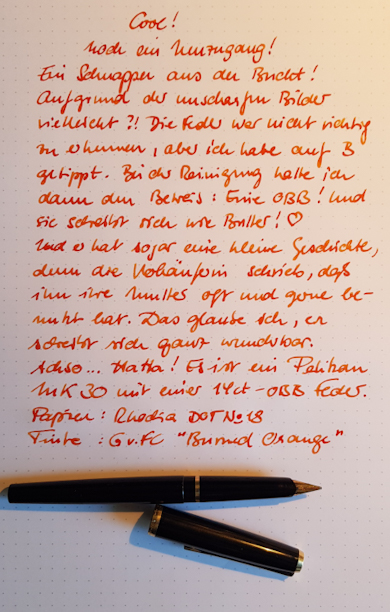 Cool!
noch ein Neuzugang!
Ein Schnapper aus der Bucht!
Aufgrund der unscharfen Bilder
vielleicht?! Die Feder war nicht richtig
zu erkennen, aber ich habe auf B
getippt. Bei der Reinigung hatte ich
dann den Beweis: Eine OBB! Und
sie schreibt sich wie Butter! ♡
Und er hat sogar eine kleine Geschichte,
denn die Verkäuferin schrieb, daß
ihn ihre Mutter oft und gerne be-
nutzt hat. Das glaube ich, er
schreibt sich ganz wunderbar.
Achso... Hatta! Es ist ein Pelikan
MK 30 mit einer 14ct-OBB Feder.
Papier: Rhodia DOT No 18
Tinte: GvFC "Burned Orange"